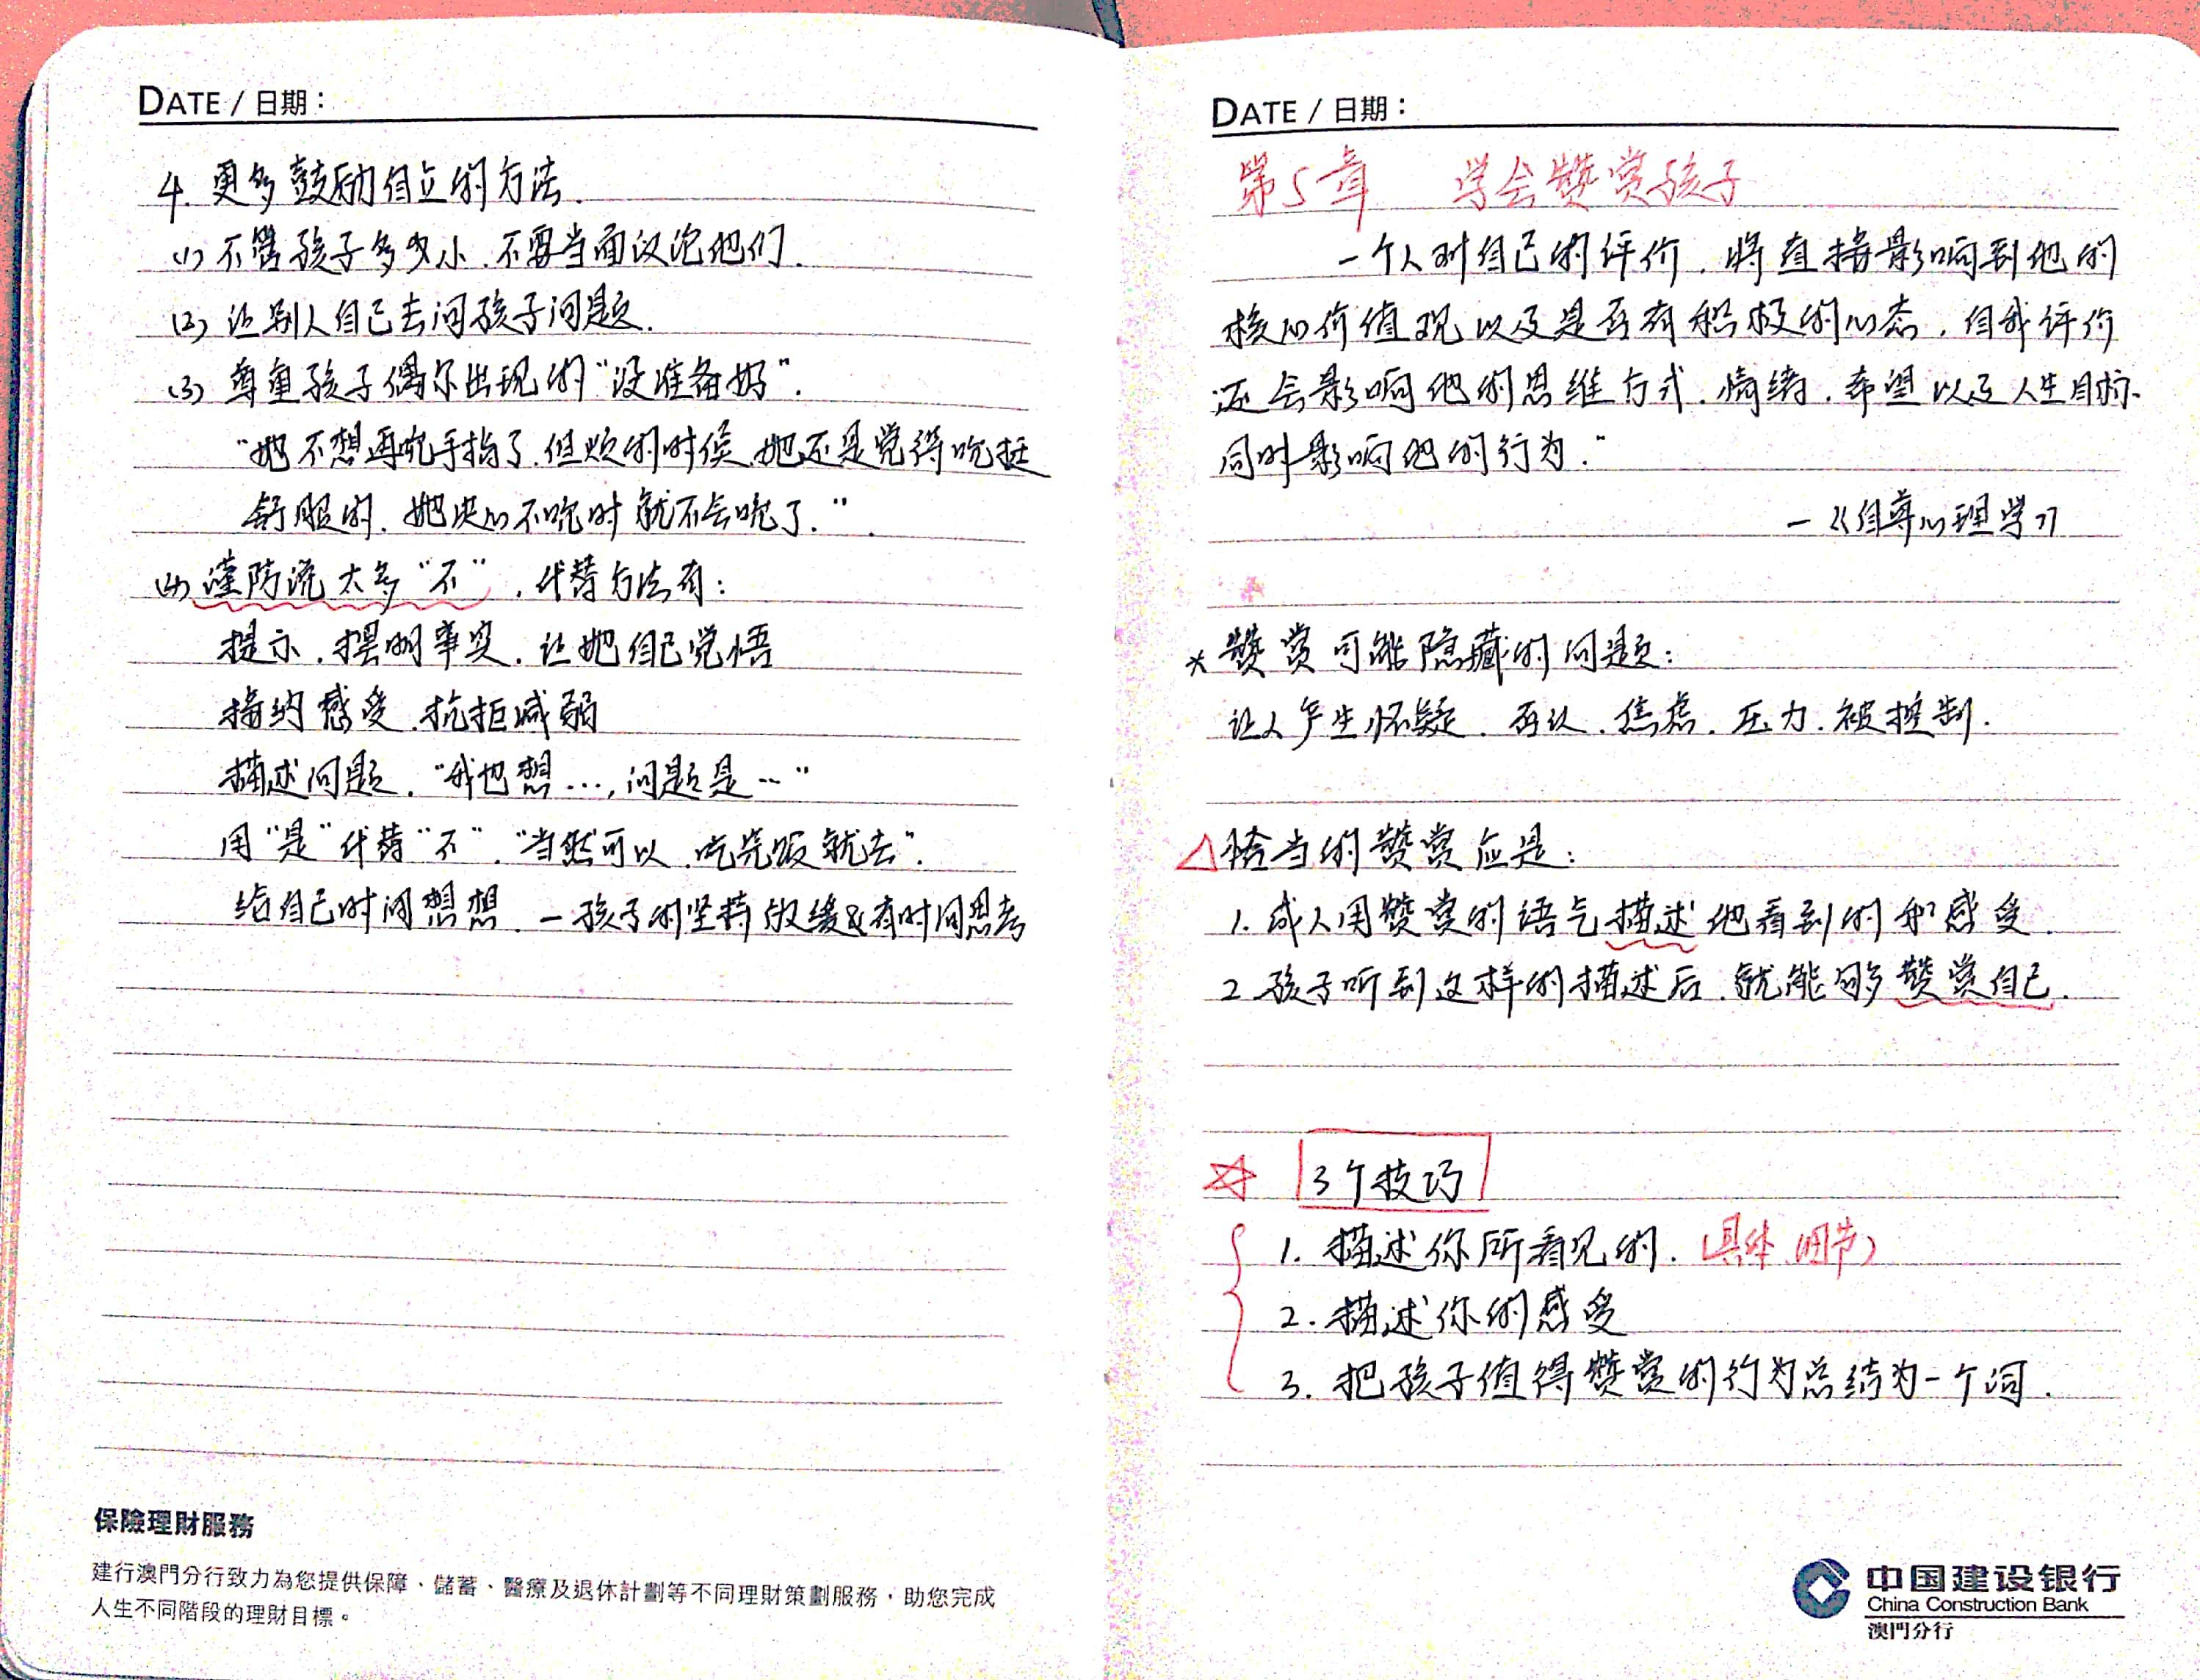 DATE / 日期：
4. 更多鼓励自立的方法.
(1) 不管孩子多少小.不要当面议论他们.
(2) 让别人自己去问孩子问题.
(3) 尊重孩子偶尔出现的“没准备好”.
“她不想再吃手指了.但烦的时候.她还是觉得吃挺
舒服的.她决心不吃时就不会吃了.”.
(4) 谨防说太多“不”.代替方法有:
提示.摆明事实.让她自己觉悟
接纳感受.抗拒减弱
描述问题.“我也想…,问题是…”
用“是”代替“不”.“当然可以.吃完饭就去”.
给自己时间想想.—孩子的坚持放缓&有时间思考
保險理財服務
建行澳門分行致力為您提供保障、儲蓄、醫療及退休計劃等不同理財策劃服務，助您完成
人生不同階段的理財目標。
DATE / 日期：
第5章 学会赞赏孩子
一个人对自己的评价.将直接影响到他的
核心价值观以及是否有积极的心态.自我评价
还会影响他的思维方式.情绪.希望以及人生目标.
同时影响他的行为.”
—《自尊心理学》
* 赞赏可能隐藏的问题:
让人产生怀疑.否认.焦虑.压力.被控制.
△恰当的赞赏应是:
1. 成人用赞赏的语气描述他看到的和感受.
2. 孩子听到这样的描述后.就能够赞赏自己.
☆ 3个技巧
1. 描述你所看见的.(具体.细节)
2. 描述你的感受
3. 把孩子值得赞赏的行为总结为一个词.
中国建设银行
China Construction Bank
澳門分行